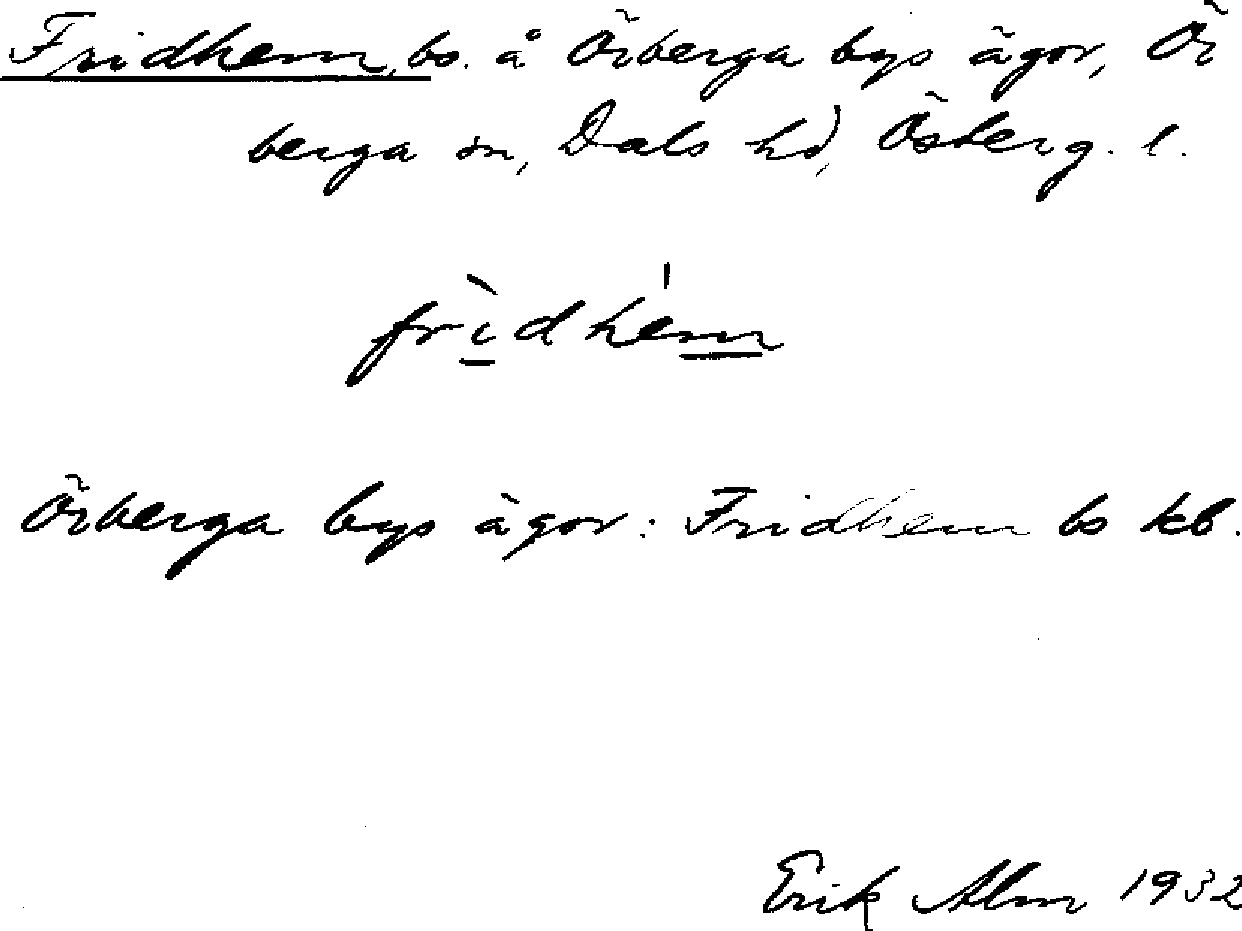 Fridhem, bo. å Örberga bys ägor, Ör
berga sn, Dals hd, Österg. l.
frìdhém
Örberga bys ägor: Fridhem bo kb.
Erik Alm 1932